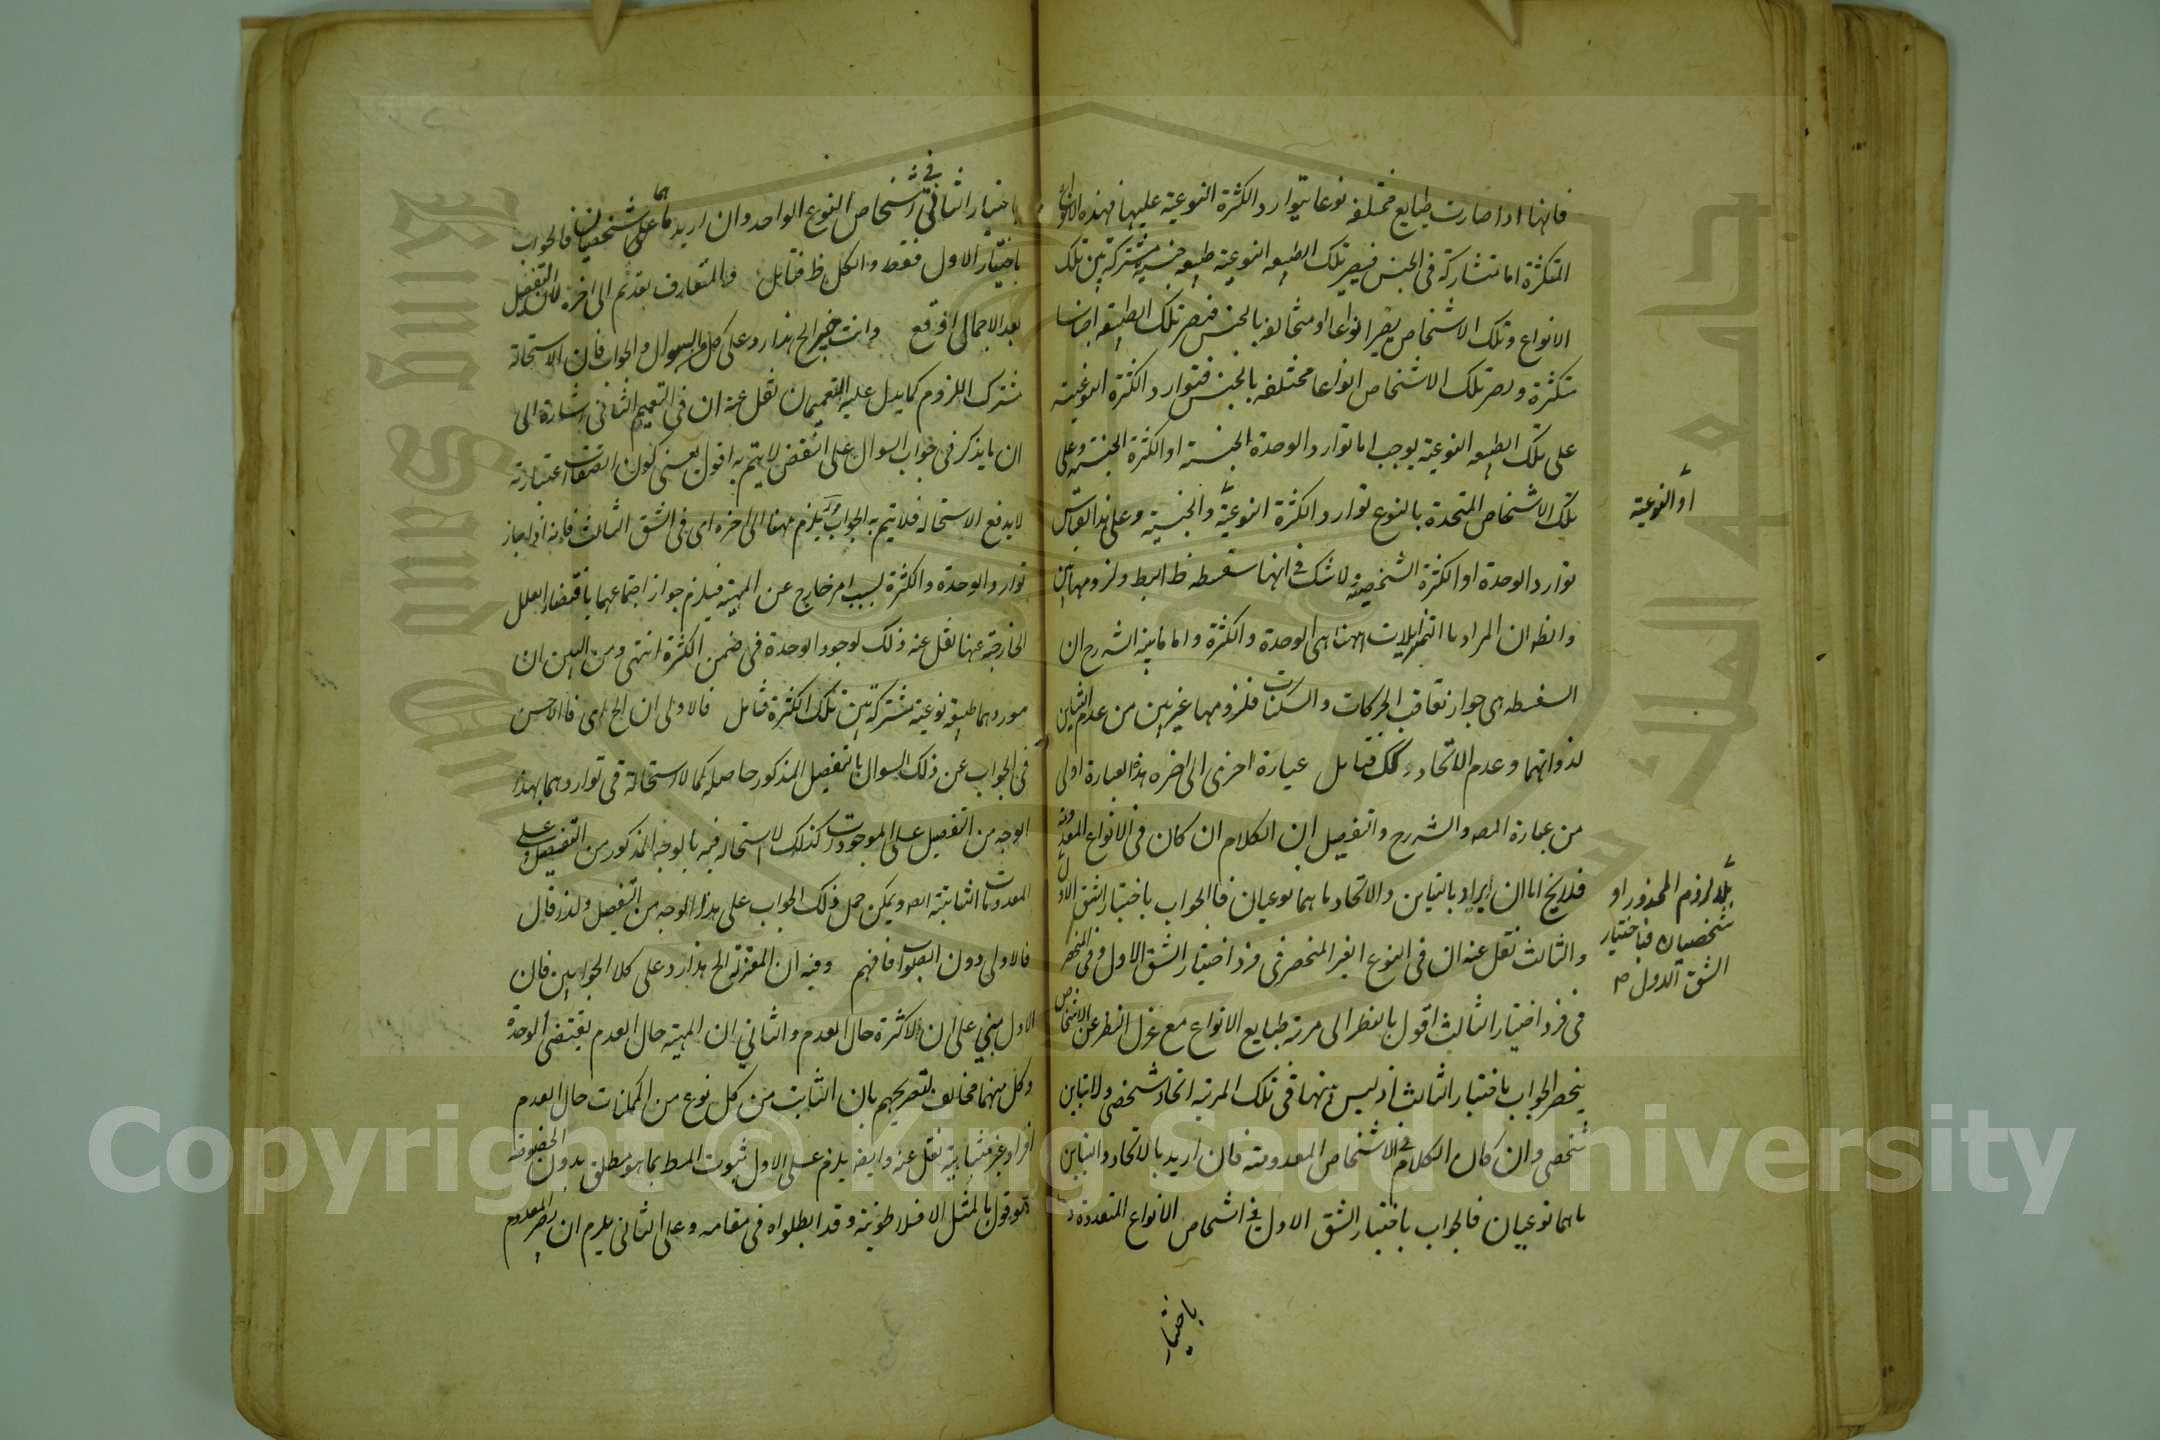 فانها اذا صارت طبايع مختلفه نوعا يتوارد الكثرة النوعية عليها فهذه الانواع
المتكثرة اما متشاركة فى الجنس فيصير تلك الطبيعه النوعية طبيعه جنسية مشتركة بين تلك
الانواع وتلك الاشخاص يصير انواعا او متخالفه بالجنس فيصير تلك الطبيعه اجناسا
متكثرة ويصير تلك الاشخاص انواعا مختلفه بالجنس فتوارد الكثرة النوعية
على تلك الطبيعه النوعية يوجب اما توارد الوحدة الجنسية او الكثرة الجنسية وعلى
تلك الاشخاص المتحدة بالنوع توارد الكثرة النوعية والجنسية وعلى هذا القياس
او النوعية
توارد الوحدة او الكثرة الشخصية لا شك فى انها سفسطه ظ البط ولزومها بين
والظ ان المراد بالتمايزات ههنا هى الوحدة والكثرة واما ما بينه الشرح ان
السفسطه هى جواز تعاقب الحركات والسكنات فلزومها غير بين من عدم التباين
لذواتهما وعدم الاتحاد كك فتامل عبارة اخرى الى اخره هذه العبارة اولى
من عبارة المص والشرح والتفصيل ان الكلام ان كان فى الانواع المعدومة
فلايخ اما ان يراد بالتباين والاتحاد ما هما نوعيان فالجواب باختيار الشق الاول
بلا لزوم المحذور او
شخصيان فباختيار
الشق الاول
والثالث نقل عنه ان فى النوع الغير المنحصر فى فرد اختيار الشق الاول وفى المنحصر
فى فرد اختيار الثالث اقول بالنظر الى مرتبة طبايع الانواع مع عزل النظر عن الاشخاص
ينحصر الجواب باختيار الثالث اذ ليس بينها فى تلك المرتبة اتحاد شخصى ولا تباين
شخصى وان كان الكلام فى الاشخاص المعدومة فان اريد بالاتحاد والتباين
ما هما نوعيان فالجواب باختيار الشق الاول فى اشخاص الانواع المتعددة و
باختيار
باختيار الثانى فى اشخاص النوع الواحد وان اريد ما هما شخصيان فالجواب
باختيار الاول فقط والكل ظ فتامل والمتعارف تقدم الى اخره لان التفصيل
بعد الاجمال اوقع وانت خبير الخ هذا رد على كل السوال والجواب فان الاستحالة
مشترك اللزوم كما يدل عليه التعميمان نقل عنه ان فى التعميم الثانى اشارة الى
ان ما يذكر فى جواب السوال على النقض لا يتم به اقول يعنى كون الصفات اعتبارية
لا يدفع الاستحاله فلا يتم به الجواب يلزم مهنا الى اخره اى فى الشق الثالث فانه اذا جاز
توارد الوحدة والكثرة بسبب امر خارج عن المهية فيلزم جواز اجتماعهما باقتضاء العلل
الخارجة عنها نقل عنه ذلك لوجود الوحدة فى ضمن الكثرة انتهى ومن البين ان
موردهما طبيعة نوعية مشتركة بين تلك الكثرة فتامل فالاولى ان الخ اى فالاحسن
فى الجواب عن ذلك السوال بالتفصيل المذكور حاصله كما لا استحالة فى تواردهما بهذا
الوجه من التفصيل على الموجودات كذلك لا استحاله فيه بالوجه المذكور من التفصيل على
المعدومات الثابتة ايضه ويمكن حمل ذلك الجواب على هذا الوجه من التفصيل ولذا قال
فالاولى دون الصواب فافهم وفيه ان المعتزلة الخ هذا رد على كلا الجوابين فان
الاول مبنى على ان لا كثرة حال العدم والثانى ان المهية حال العدم يقتضى الوحدة
وكل منهما مخالف لتصريحهم بان الثابت من كل نوع من الممكنات حال العدم
افراد غير متناهية نقل عنه وايضه يلزم على الاول ثبوت المط بما هو مطلق بدون الخصوصية
وهو قول بالمثل الافلاطونية وقد ابطلوه فى مقامه وعلى الثانى يلزم ان يصير المعدوم
جامعة الملك سعود
King Saud University
Copyright © King Saud University